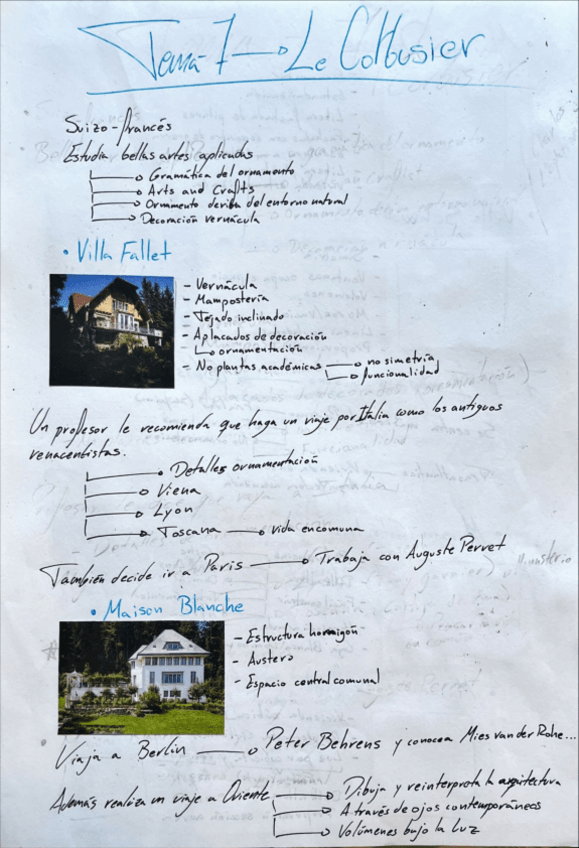 Tema 7 → Le Corbusier
Suizo-francés
Estudia bellas artes aplicadas
→ Gramática del ornamento
→ Arts and Crafts
→ Ornamento deriba del entorno natural
→ Decoración vernácula
• Villa Fallet
- Vernácula
- Mampostería
- Tejado inclinado
- Aplacados de decoración
→ ornamentación
- No plantas académicas → no simetría
→ funcionalidad
Un profesor le recomienda que haga un viaje por Italia como los antiguos
renacentistas.
→ Detalles ornamentación
→ Viena
→ Lyón
→ Toscana → vida en comuna
También decide ir a Paris → Trabaja con Auguste Perret
• Maison Blanche
- Estructura hormigón
- Austero
- Espacio central comunal
Viaja a Berlin → Peter Behrens y conoce a Mies van der Rohe...
Además realiza un viaje a Oriente → Dibuja y reinterpreta la arquitectura
→ A través de ojos contemporáneos
→ Volúmenes bajo la luz